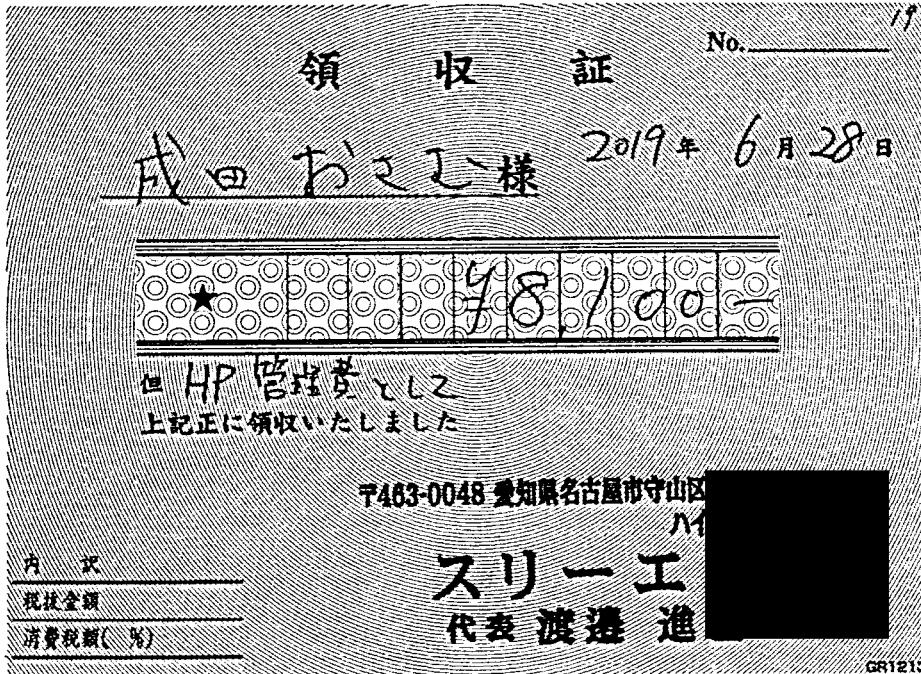 19
No.
領 収 証
成田 おさむ 様 2019年 6月28日
★ ¥8,100-
但 HP管理費として
上記正に領収いたしました
〒463-0048 愛知県名古屋市守山区
ハイ
スリーエ
代表 渡邉 進
内 訳
税抜金額
消費税額( %)
GR1213